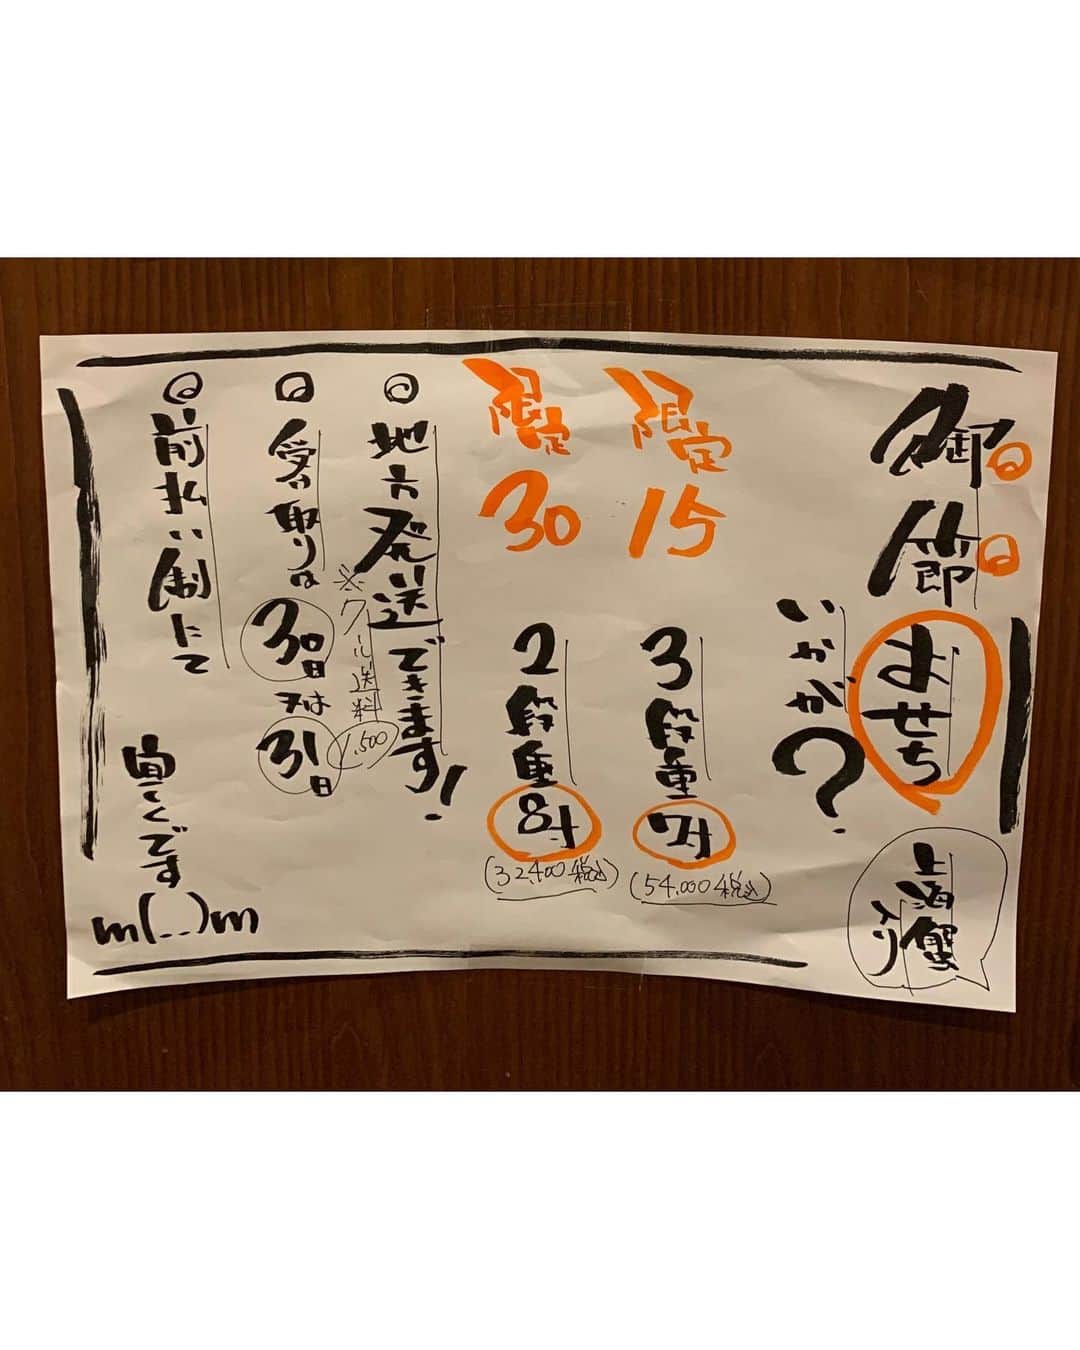 御節
おせち
いかが?
上海蟹
入り
限定15
3段重 7寸
(54,000税込)
限定30
2段重 8寸
(32,400税込)
◎地方発送できます!
※クール送料
1,500
◎受け取りは30日又は31日
◎前払い制にて
宜しくです
m(..)m